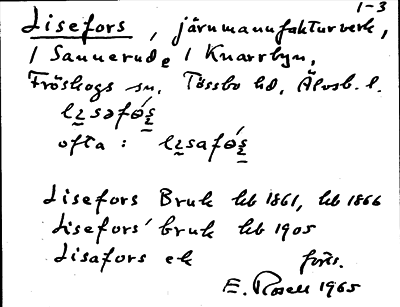 1-3
Lisefors, järnmanufakturverk,
/ Sannerude / Knarrbyn,
Fröskogs sn. Tössbo hd, Älvsb. l.
ofta :
Lisefors Bruk kb 1861, kb 1866
Lisefors' bruk kb 1905
Lisafors ek forts.
E. Rosell 1965